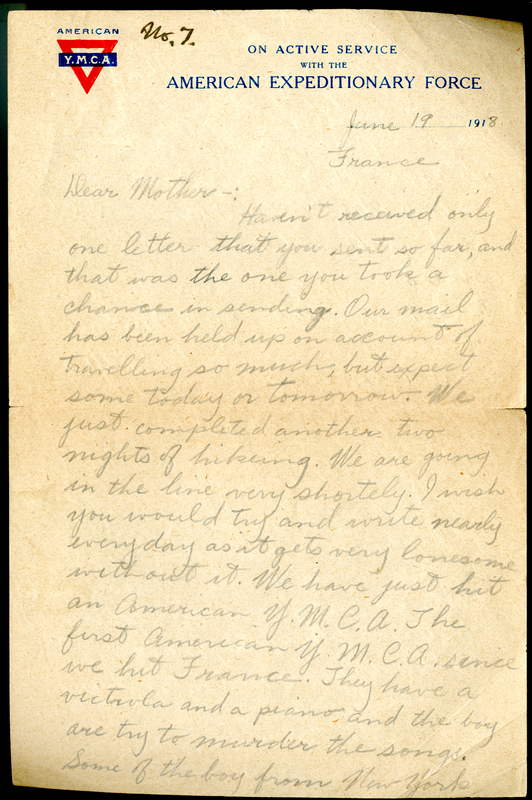 AMERICAN
Y.M.C.A.
No. 7.
ON ACTIVE SERVICE
WITH THE
AMERICAN EXPEDITIONARY FORCE
June 19 1918
France
Dear Mother-:
Haven't received only
one letter that you sent so far, and
that was the one you took a
chance in sending. Our mail
has been held up on account of
travelling so much, but expect
some today or tomorrow. We
just completed another two
nights of hikeing. We are going
in the line very shortely. I wish
you would try and write nearly
everyday as it gets very lonesome
without it. We have just hit
an American Y.M.C.A. The
first American Y.M.C.A. since
we hit France. They have a
victrola and a piano and the boy
are try to murder the songs.
Some of the boy from New York